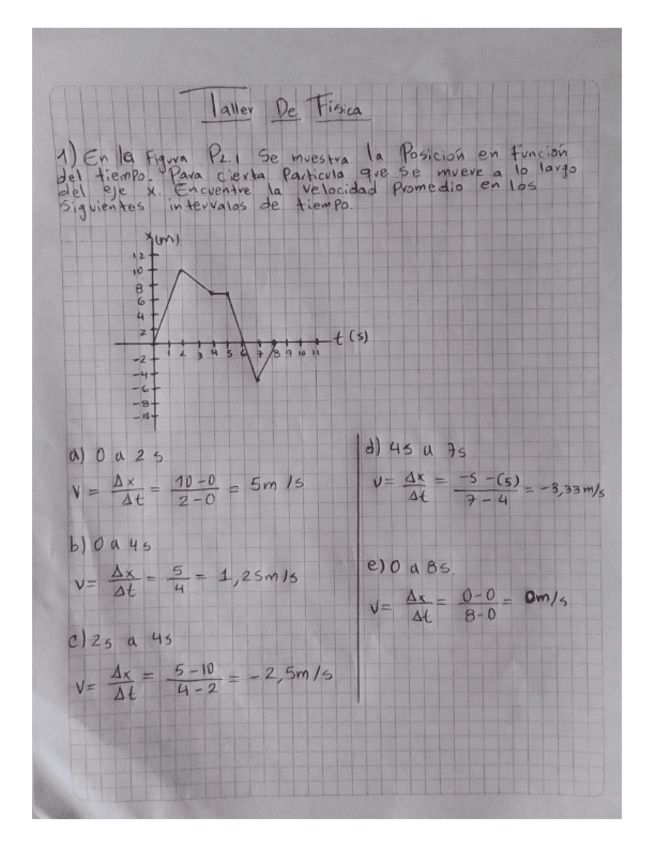 Taller De Física
1) En la Figura P2.1 Se muestra la Posición en función
del tiempo. Para cierta Particula que se mueve a lo largo
del eje x. Encuentre la velocidad Promedio en los
Siguientes intervalos de tiempo.
x(m)
12
10
8
6
4
2
-2
-4
-6
-8
-10
1 2 3 4 5 6 7 8 9 10 11
t(s)
a) 0 a 2 s
V = Δx/Δt = 10-0/2-0 = 5m/s
b) 0 a 4s
V = Δx/Δt = 5/4 = 1,25m/s
c) 2s a 4s
V = Δx/Δt = 5-10/4-2 = -2,5m/s
d) 4s a 7s
V = Δx/Δt = -5-(5)/7-4 = -3,33m/s
e) 0 a 8s.
V = Δx/Δt = 0-0/8-0 = 0m/s